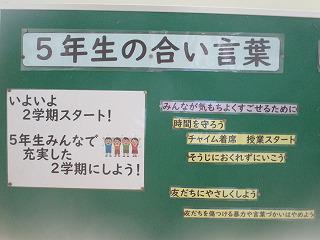 5年生の合い言葉
いよいよ
2学期スタート!
5年生みんなで
充実した
2学期にしよう!
みんなが気もちよくすごせるために
時間を守ろう
チャイム着席 授業スタート
そうじにおくれずにいこう
友だちにやさしくしよう
友だちを傷つける暴力や言葉づかいはやめよう